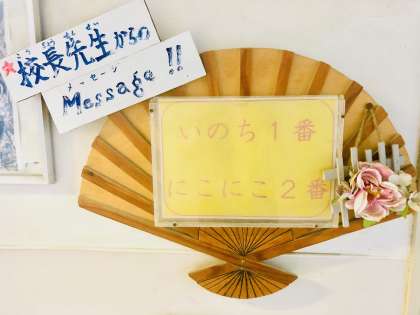 ★校長先生からの
こうちょうせんせい
メッセージ
Message!!
いのち1番
にこにこ2番